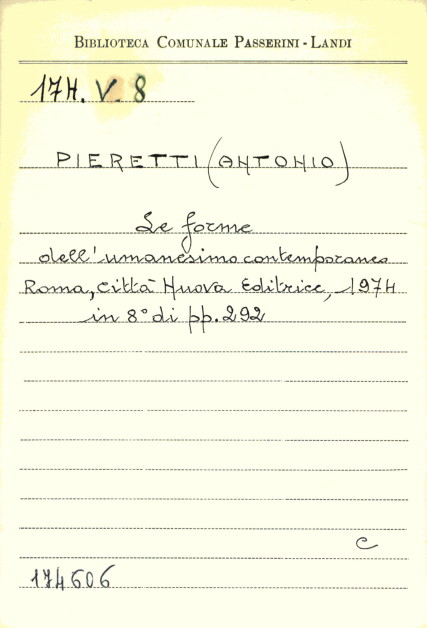 BIBLIOTECA COMUNALE PASSERINI - LANDI
174. V. 8
PIERETTI (ANTONIO)
Le forme
dell'umanesimo contemporaneo
Roma, Città Nuova Editrice, 1974
in 8° di pp. 292
C
174606